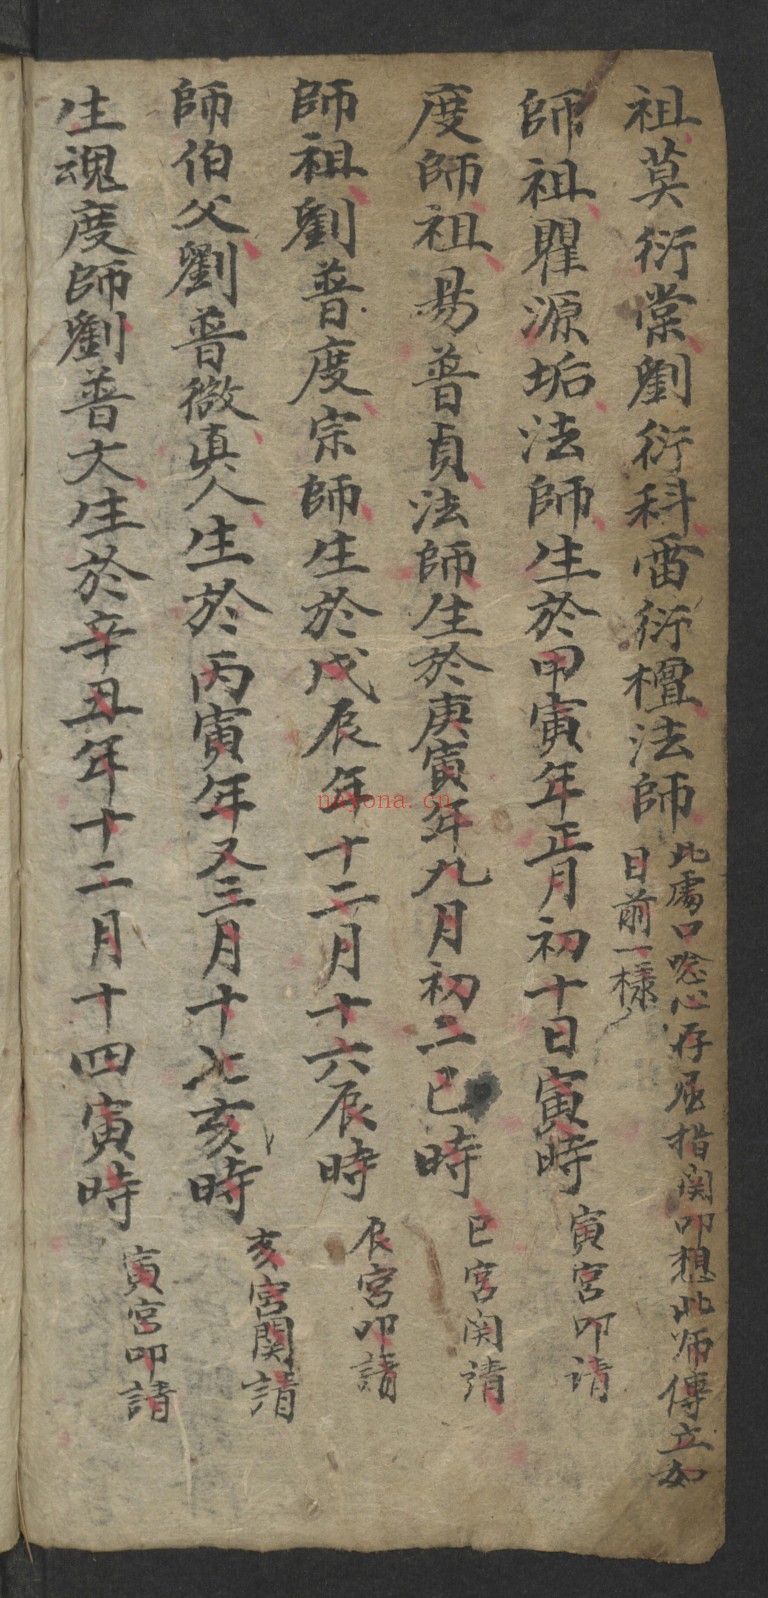 祖莫衍棠劉衍科雷衍檀法師
此處口唸心存屈指関叩想此师傳立如
目前一樣
師祖瞿源垢法師生於甲寅年正月初十日寅時
寅宮叩请
度師祖易普貞法師生於庚寅年九月初二巳時
巳宮関请
師祖劉普度宗師生於戊辰年十二月十六辰時
辰宮叩請
師伯父劉普微真人生於丙寅年又三月十七亥時
亥宮関請
生魂度師劉普大生於辛丑年十二月十四寅時
寅宮叩請
nayona.cn